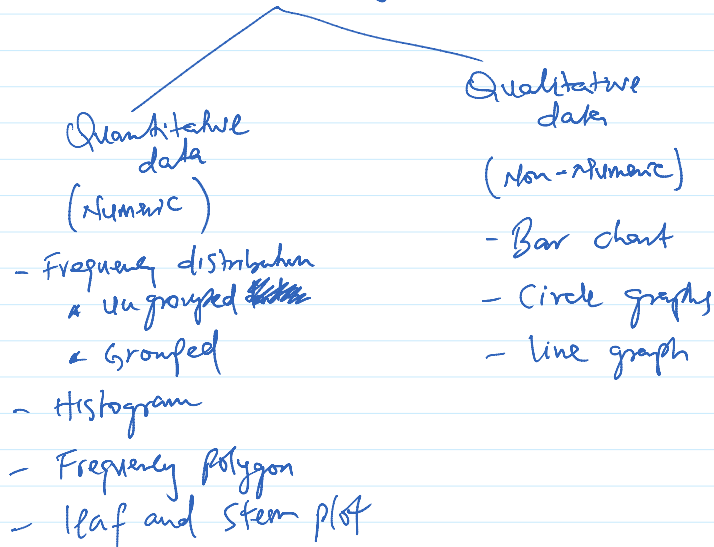 Quantitative
data
(Numeric)
- Frequency distribution
* Ungrouped
* Grouped
- Histogram
- Frequency polygon
- leaf and stem plot
Qualitative
data
(Non-Numeric)
- Bar chart
- Circle graphs
- line graph